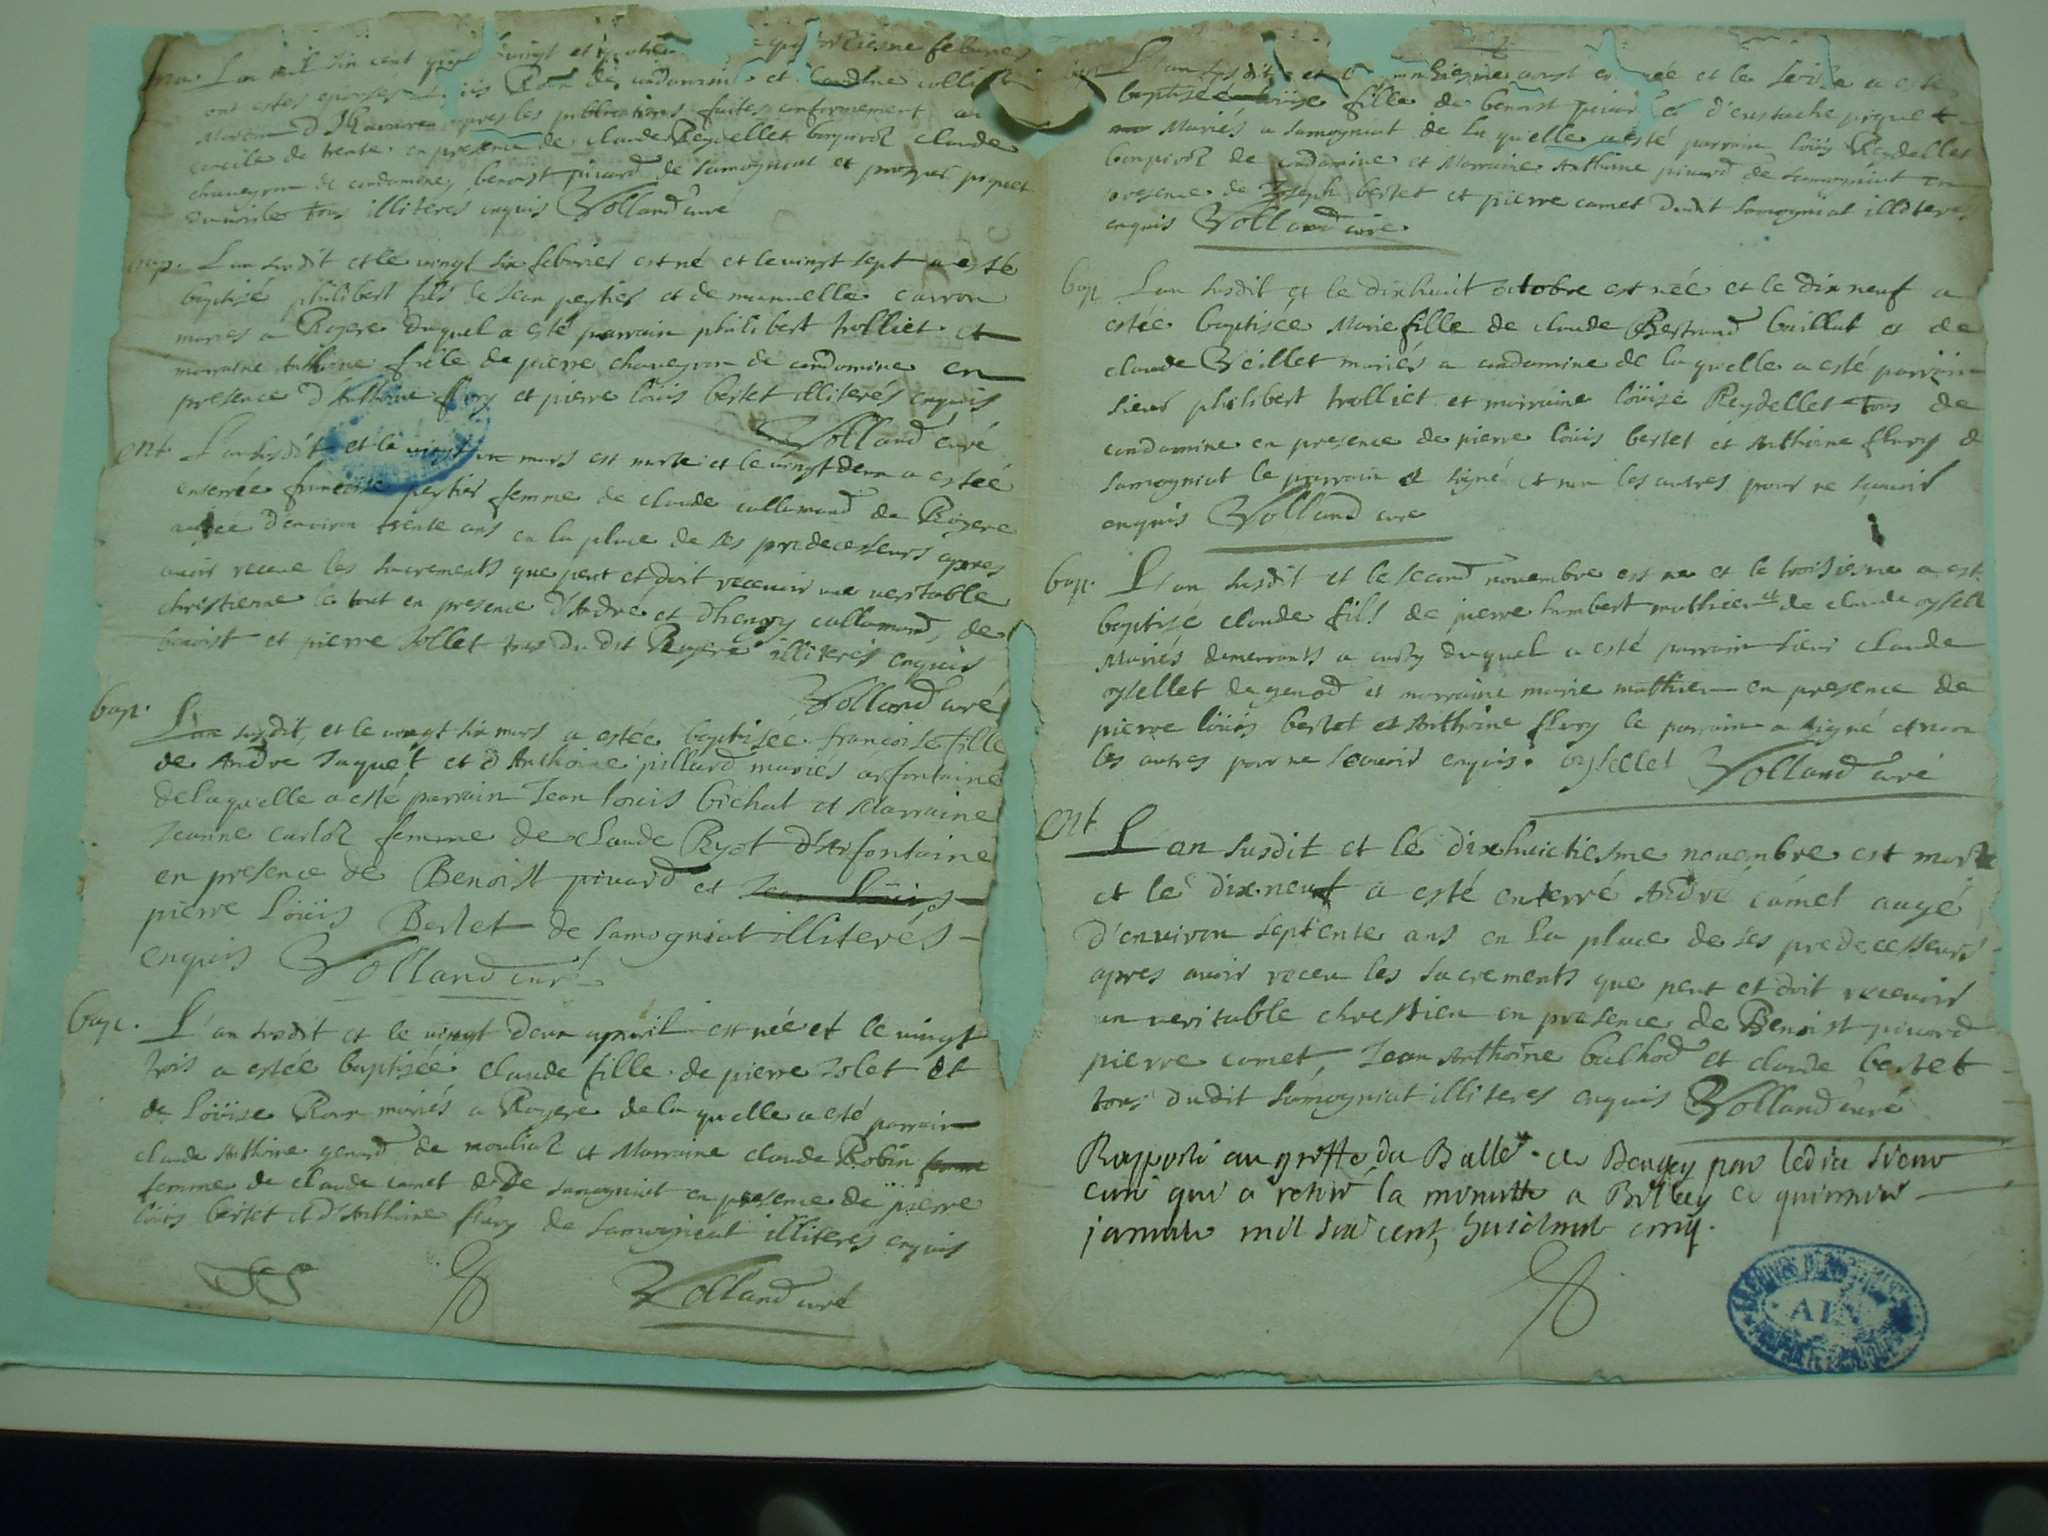 L'an mil six cent quatre vingt et quatre febvrier
ont estes espousés Roux de condamine et
apres les publications faites conformement au
concile de trente en presence de claude Reydellet claude
chaveyron de condamine, benoist picard de Samogniat et piquet
tous illiteres enquis Volland curé
bap. L'an susdit et le vingt six febvrier est né et le vingt sept a esté
baptisé philibert fils de Jean peytier et de carron
mariés a Rogere duquel a esté parrain philibert trolliet et
marraine Anthoine fille de pierre chaveyron de condamine en
presence d'Anthoine flury et pierre loüis bertet illiterés enquis
Volland curé
Ent. L'an susdit et le vingt un mars est morte et le vingt deux a estéé
enterrée francoise peytier femme de claude callamand de Rogere
aagée d'environ trente ans en la place de ses predecesseurs apres
avoir receue les sacrements que peut et doit recevoir une veritable
christienne le tout en presence d'Andre et d'henry callamand, de
benoist et pierre Jollet tous du dit Rogere illiteres enquis
Volland curé
bap. L'an susdit, et le vingt six mars a estée baptisée francoise fille
de Andre Juquet et d'Anthoine pillard mariés arfontaine
de laquelle a esté parrain Jean loüis bichat et Marraine
Jeanne carloz femme de claude Ryot d'Arfontaine
en presence de Benoist picard et Jean loüis
pierre loüis Bertet de Samogniat illiterés
enquis Volland curé
bap. L'an susdit et le vingt deux appvril est née et le vingt
trois a estée baptisée claude fille de pierre Jolet et
de loüise Roux mariés a Rogere de la quelle a esté parrain
claude Anthoine genard de et Marraine claude Robin
femme de claude camet de Samogniat en presence de pierre
loüis bertet et d'Anthoine flury de Samogniat illiteres enquis
Volland curé
L'an susdit et est née et le seize a esté
baptisée loüise fille de benoist picard et d'eustache piquet
Mariés a Samogniat de la quelle a esté parrain loüis Reydellet
de condamine et Marraine Anthoine picard de Samogniat en
presence de Joseph bertet et pierre camet dudit Samogniat illiteres
enquis Volland curé
bap L'an susdit et le dixhuit octobre est née et le dix neuf a
estée baptisée Marie fille de claude Bertrand baillat et de
claude Veillet mariés a condamine de la quelle a esté parrain
sieur philibert trolliet et marraine loüise Reydellet tous de
condamine en presence de pierre loüis bertet et Anthoine flury de
Samogniat le parrain a signé et non les autres pour ne scavoir
enquis Volland curé
bap. L'an susdit et le second novembre est né et le troisiesme a esté
baptisé claude fils de pierre humbert mathieu et de claude oysellet
Mariés demeurants a duquel a esté parrain sieur claude
oysellet de genod et marraine marie mathieu en presence de
pierre loüis bertet et Anthoine flury le parrain a signé et non
les autres pour ne scavoir enquis. oysellet Volland curé
Ent L'an susdit et le dixhuictiesme novembre est mort
et le dix neuf a esté enterré André camet aagé
d'environ septente ans en la place de ses predecesseurs
apres avoir receu les sacrements que peut et doit recevoir
un veritable chrestien en presence de Benoist picard
pierre camet, Jean Anthoine balhod et claude bertet
tous dudit Samogniat illiteres enquis Volland curé
Rapporté au greffe du Balle. de Beugey par ledit sieur
curé qui a retiré la minutte a Belley ce
janvier mil six cent, huictante cinq.
AIN